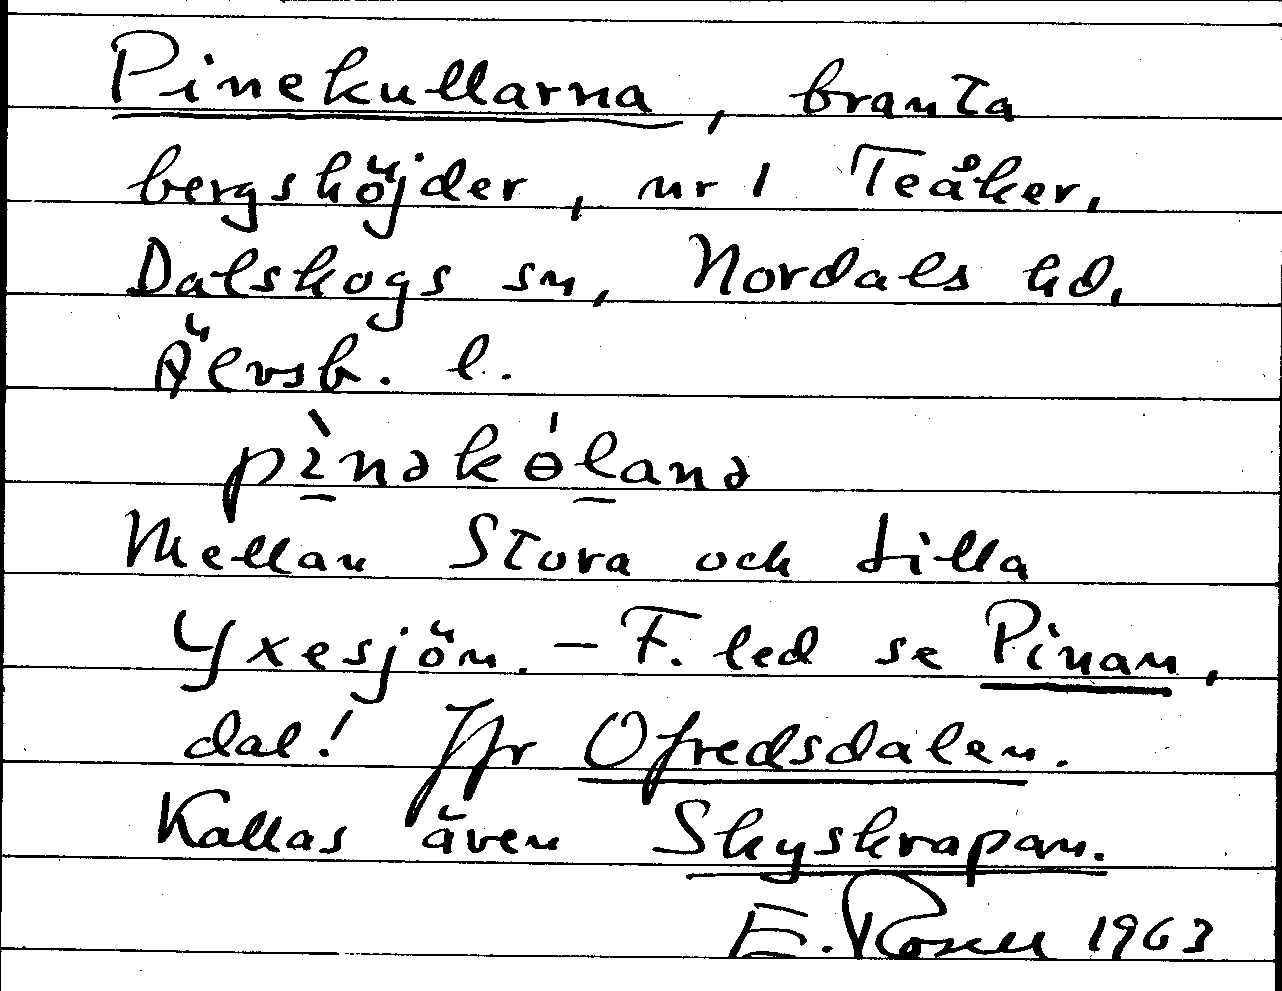 Pinekullarna, branta
bergshöjder, nr 1 Teåker,
Dalskogs sn, Nordals hd,
Älvsb. l.
pìnəkɵ́lanə
Mellan Stora och Lilla
Yxesjön. – F. led se Pinan,
dal! Jfr Ofredsdalen.
Kallas även Skyskrapan.
E. Rosell 1963